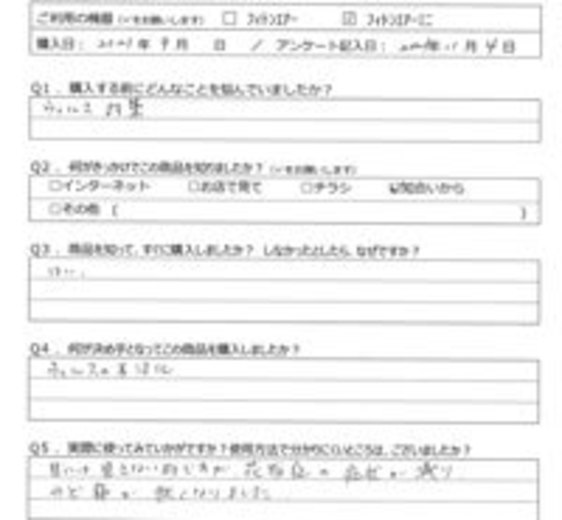 ご利用の機種 (✓をお願いします) □ フィトンエアー ☑ フィトンエアーミニ
購入日: 年 9月 日 / アンケート記入日: 年 11月 4日
Q1. 購入する前にどんなことを悩んでいましたか?
ウィルス 対策
Q2. 何がきっかけでこの商品を知りましたか? (✓をお願いします)
□インターネット □お店で見て □チラシ ☑知合いから
□その他 ( )
Q3. 商品を知って、すぐに購入しましたか? しなかったとしたら、なぜですか?
はい。
Q4. 何が決め手となってこの商品を購入しましたか?
ウィルス
Q5. 実際に使ってみていかがですか?使用方法で分かりにくいところは、ございましたか?
目には 見えない 花粉症の 症状が 減り
のど が 楽になりました